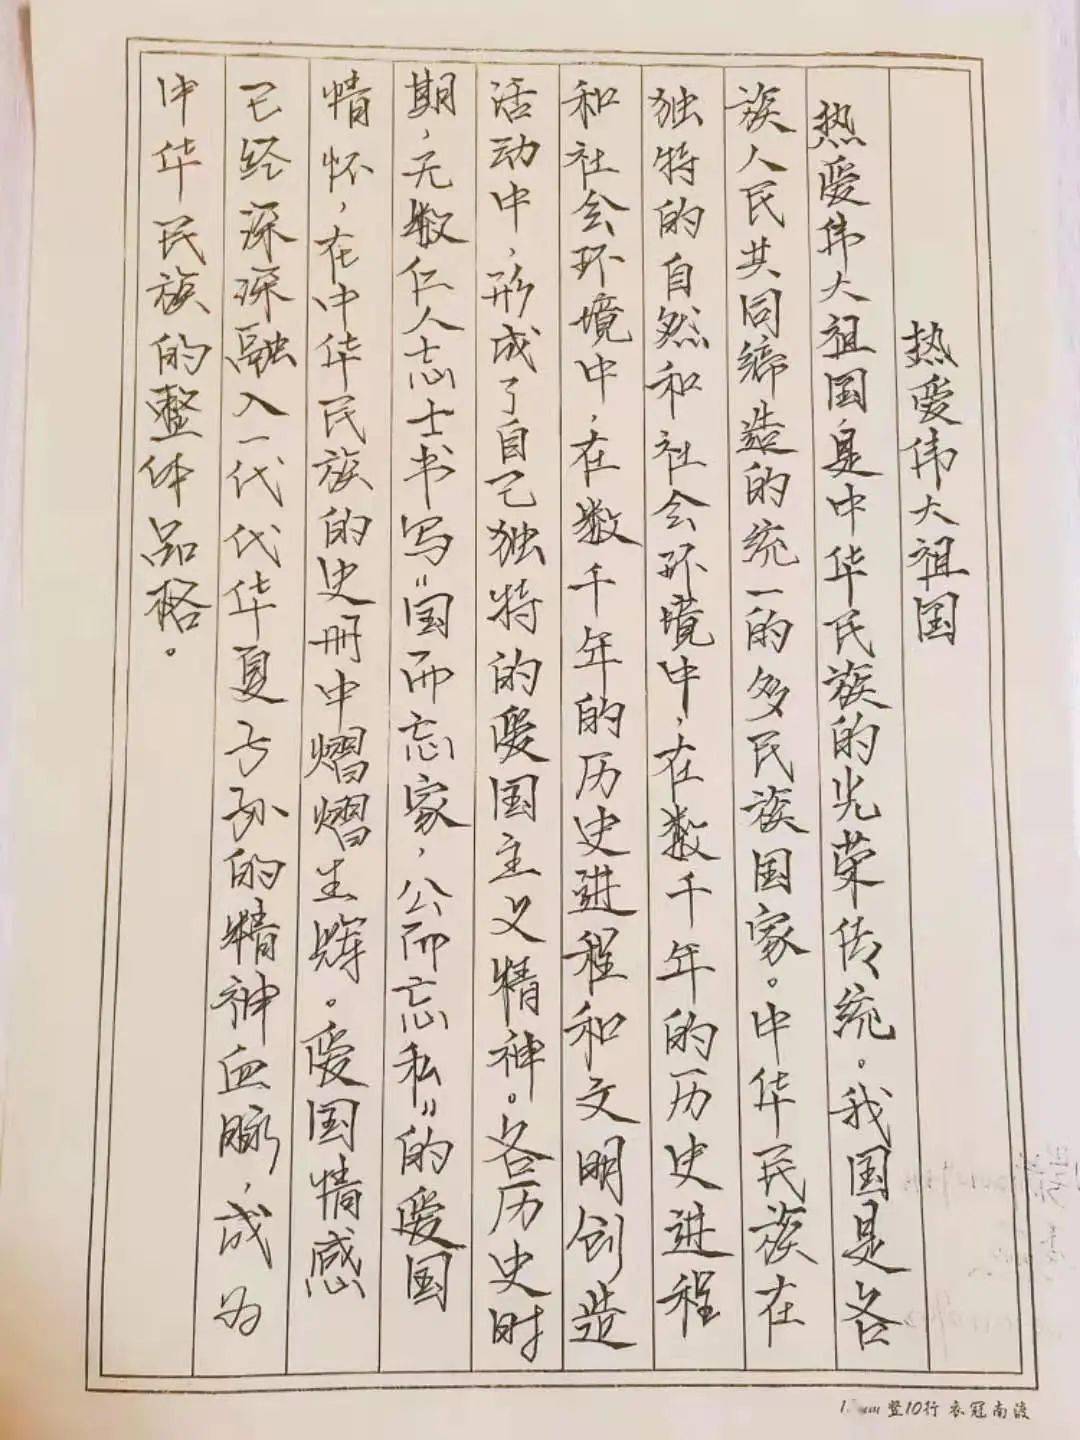 热爱伟大祖国
热爱伟大祖国是中华民族的光荣传统。我国是各
族人民共同缔造的统一的多民族国家。中华民族在
独特的自然和社会环境中，在数千年的历史进程
和社会环境中，在数千年的历史进程和文明创造
活动中，形成了自己独特的爱国主义精神。各历史时
期，无数仁人志士书写“国而忘家，公而忘私”的爱国
情怀，在中华民族的史册中熠熠生辉。爱国情感
已经深深融入一代代华夏子孙的精神血脉，成为
中华民族的整体品格。
竖10行 衣冠南渡